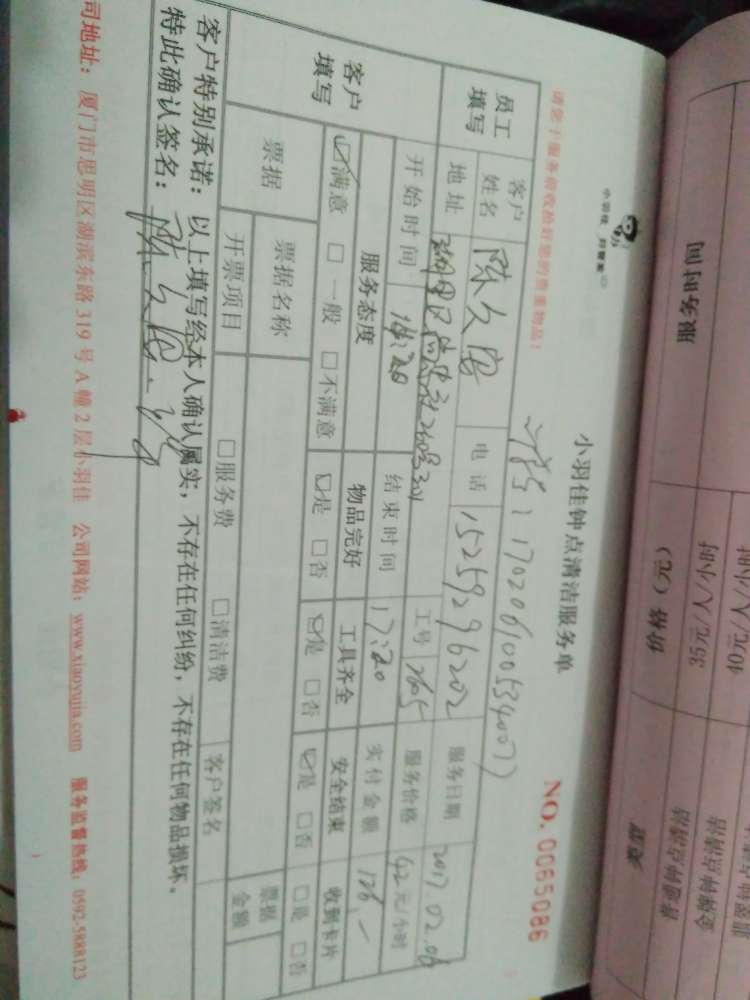 服务时间
价格（元）
类型
35元/人/小时
普通钟点清洁
40元/人/小时
金牌钟点清洁
小羽佳
小羽佳钟点清洁服务单
NO. 0065086
请您于服务前收拾好您的贵重物品！
员工填写
客户姓名
电话
15259296202
服务日期
2017.02.06
地址
工号
2605
服务价格
42元/小时
开始时间
14:20
结束时间
17:20
实付金额
126.—
客户填写
服务态度
物品完好
工具齐全
安全结束
收到卡片
☑满意 □一般 □不满意
☑是 □否
☑是 □否
☑是 □否
□是 □否
票据
票据名称
票据金额
开票项目
□服务费 □清洁费
客户签名
客户特别承诺：以上填写经本人确认属实，不存在任何纠纷，不存在任何物品损坏。
特此确认签名：
司地址：厦门市思明区湖滨东路 319 号 A 幢 2 层小羽佳 公司网站：www.xiaoyujia.com 服务监督热线：0592-5888123